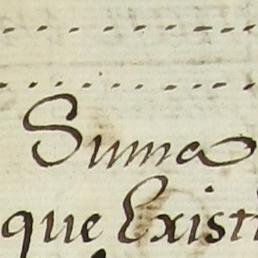 Suma
que Existi